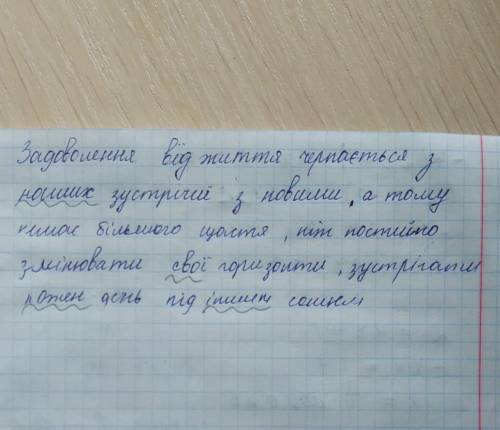 Задоволення від життя черпається з
наших зустрічей з новими, а тому
немає більшого щастя, ніж постійно
змінювати свої горизонти, зустрігати
кожен день під іншим сонцем